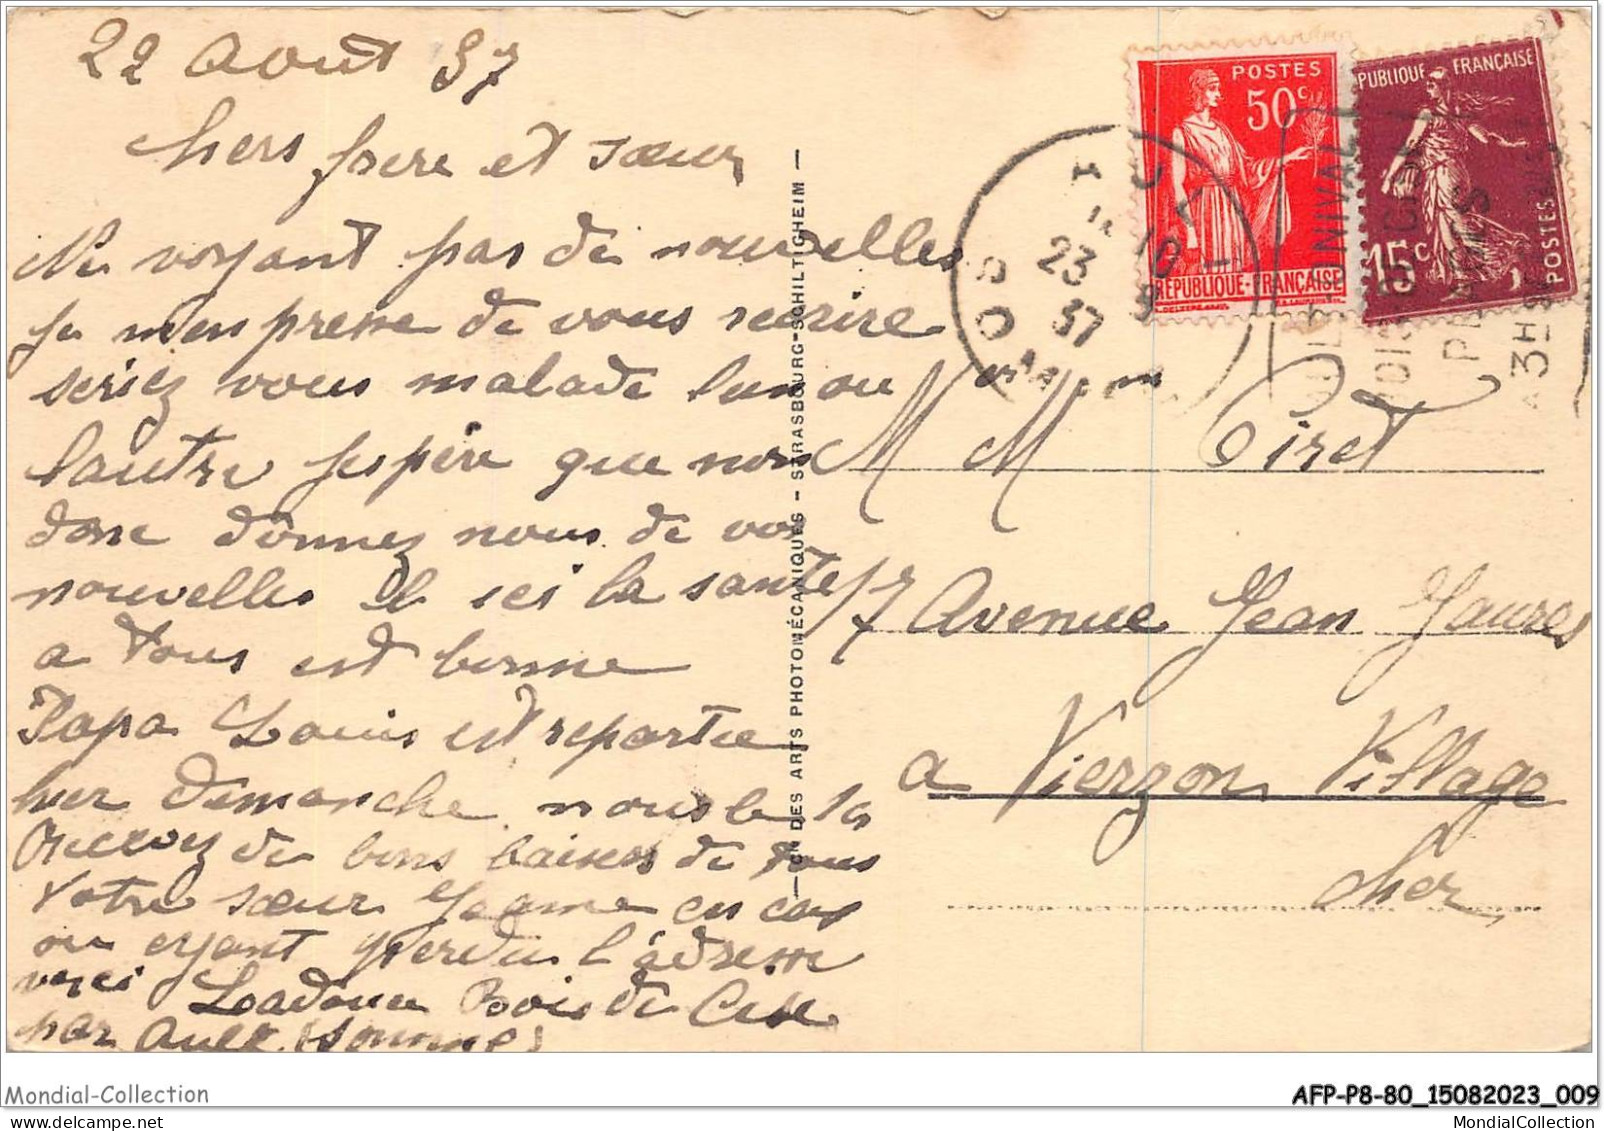 22 Août 37
Chers frere et sœur
Ne voyant pas de nouvelles
je mempresse de vous ecrire
seriez vous malade lun ou
lautre jespère que non
donc donnez nous de vos
nouvelles ici la sante
a tous est bonne
Papa Louis est repartie
hier dimanche nous le
Recevez de bons baisers de tous
Votre sœur en cas
ou ayant perdu l'adresse
voici Bois de Cise
par Ault (Somme)
CIE DES ARTS PHOTOMÉCANIQUES - STRASBOURG-SCHILTIGHEIM
POSTES
50c
RÉPUBLIQUE-FRANÇAISE
PUBLIQUE FRANÇAISE
15c
POSTES
AULT
23
37
SOMME
M M Piret
17 Avenue Jean Jaures
a Vierzon Village
Cher
Mondial-Collection
AFP-P8-80_15082023_009
MondialCollection